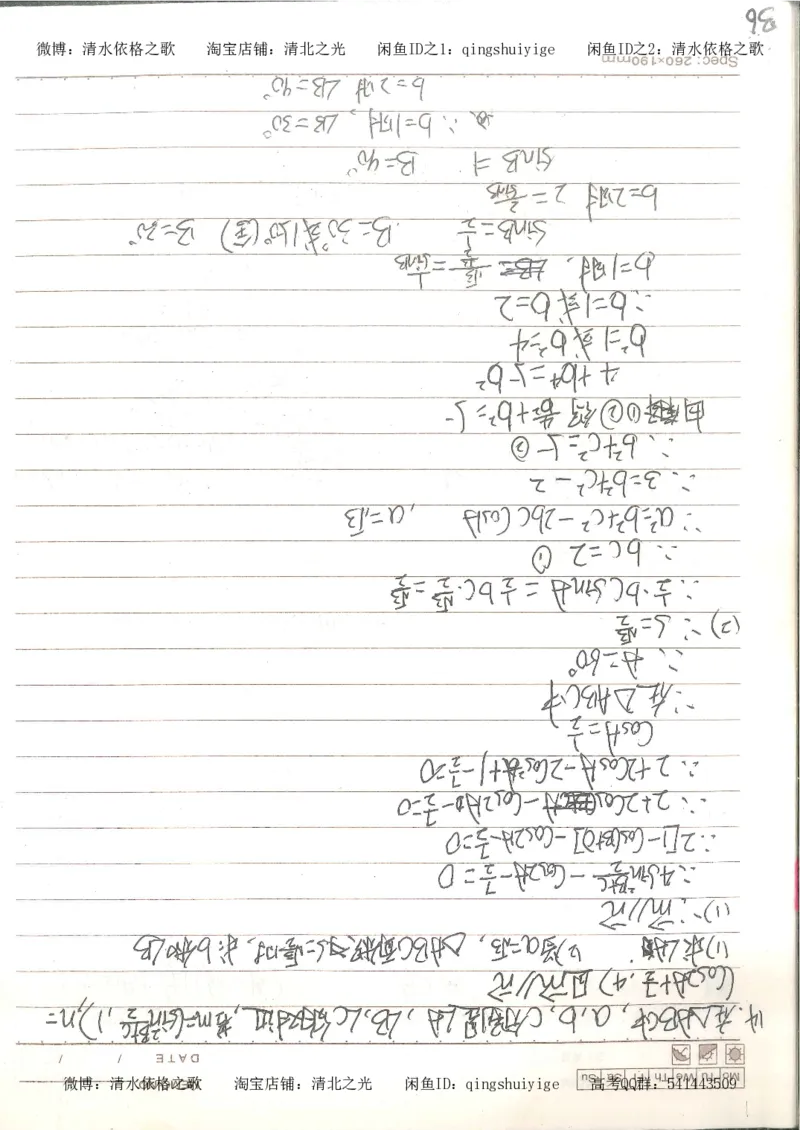 微博：清水依格之歌 淘宝店铺：清北之光 闲鱼ID：qingshuiyige 高考QQ群：541443509
Mo Tu We Th Fr Sa Su
DATE / /
14. 在△ABC中, a, b, C分别是∠A, ∠B, ∠C的对边, 若m=(sin²(B+C)/2, 1) n=
(cos2A+7/2, 4) 且m//n
(1)求∠A (2)当a=√3, △ABC面积为S=√3/2时, 求: b和∠B
(1)∵ m//n
∴ 4sin²(B+C)/2 - cos2A - 7/2 = 0
∴ 2[1-cos(B+C)] - cos2A - 7/2 = 0
∴ 2+2cosA - cos2A - 7/2 = 0
∴ 2+2cosA - 2cos²A + 1 - 7/2 = 0
cosA = 1/2
∵ 在△ABC中
∴ A=60°
(2) ∵ S=√3/2
∴ 1/2·bcsinA = 1/2bc·√3/2 = √3/2
∴ bc=2 ①
∵ a²=b²+c²-2bccosA , a=√3
∴ 3=b²+c²-2
∴ b²+c²=5 ②
由①②得 4/b²+b²=5
4+b⁴=5b²
b²=1或b²=4
∴ b=1或b=2
b=1时, √3/(√3/2) = 1/sinB
sinB=1/2 B=30°或150°(舍) B=30°
b=2时 2=2/sinB
sinB=1 B=90°
∴ b=1时, ∠B=30°
b=2时 ∠B=90°
Spec: 260×190mm
微博：清水依格之歌 淘宝店铺：清北之光 闲鱼ID之1：qingshuiyige 闲鱼ID之2：清水依格之歌
36